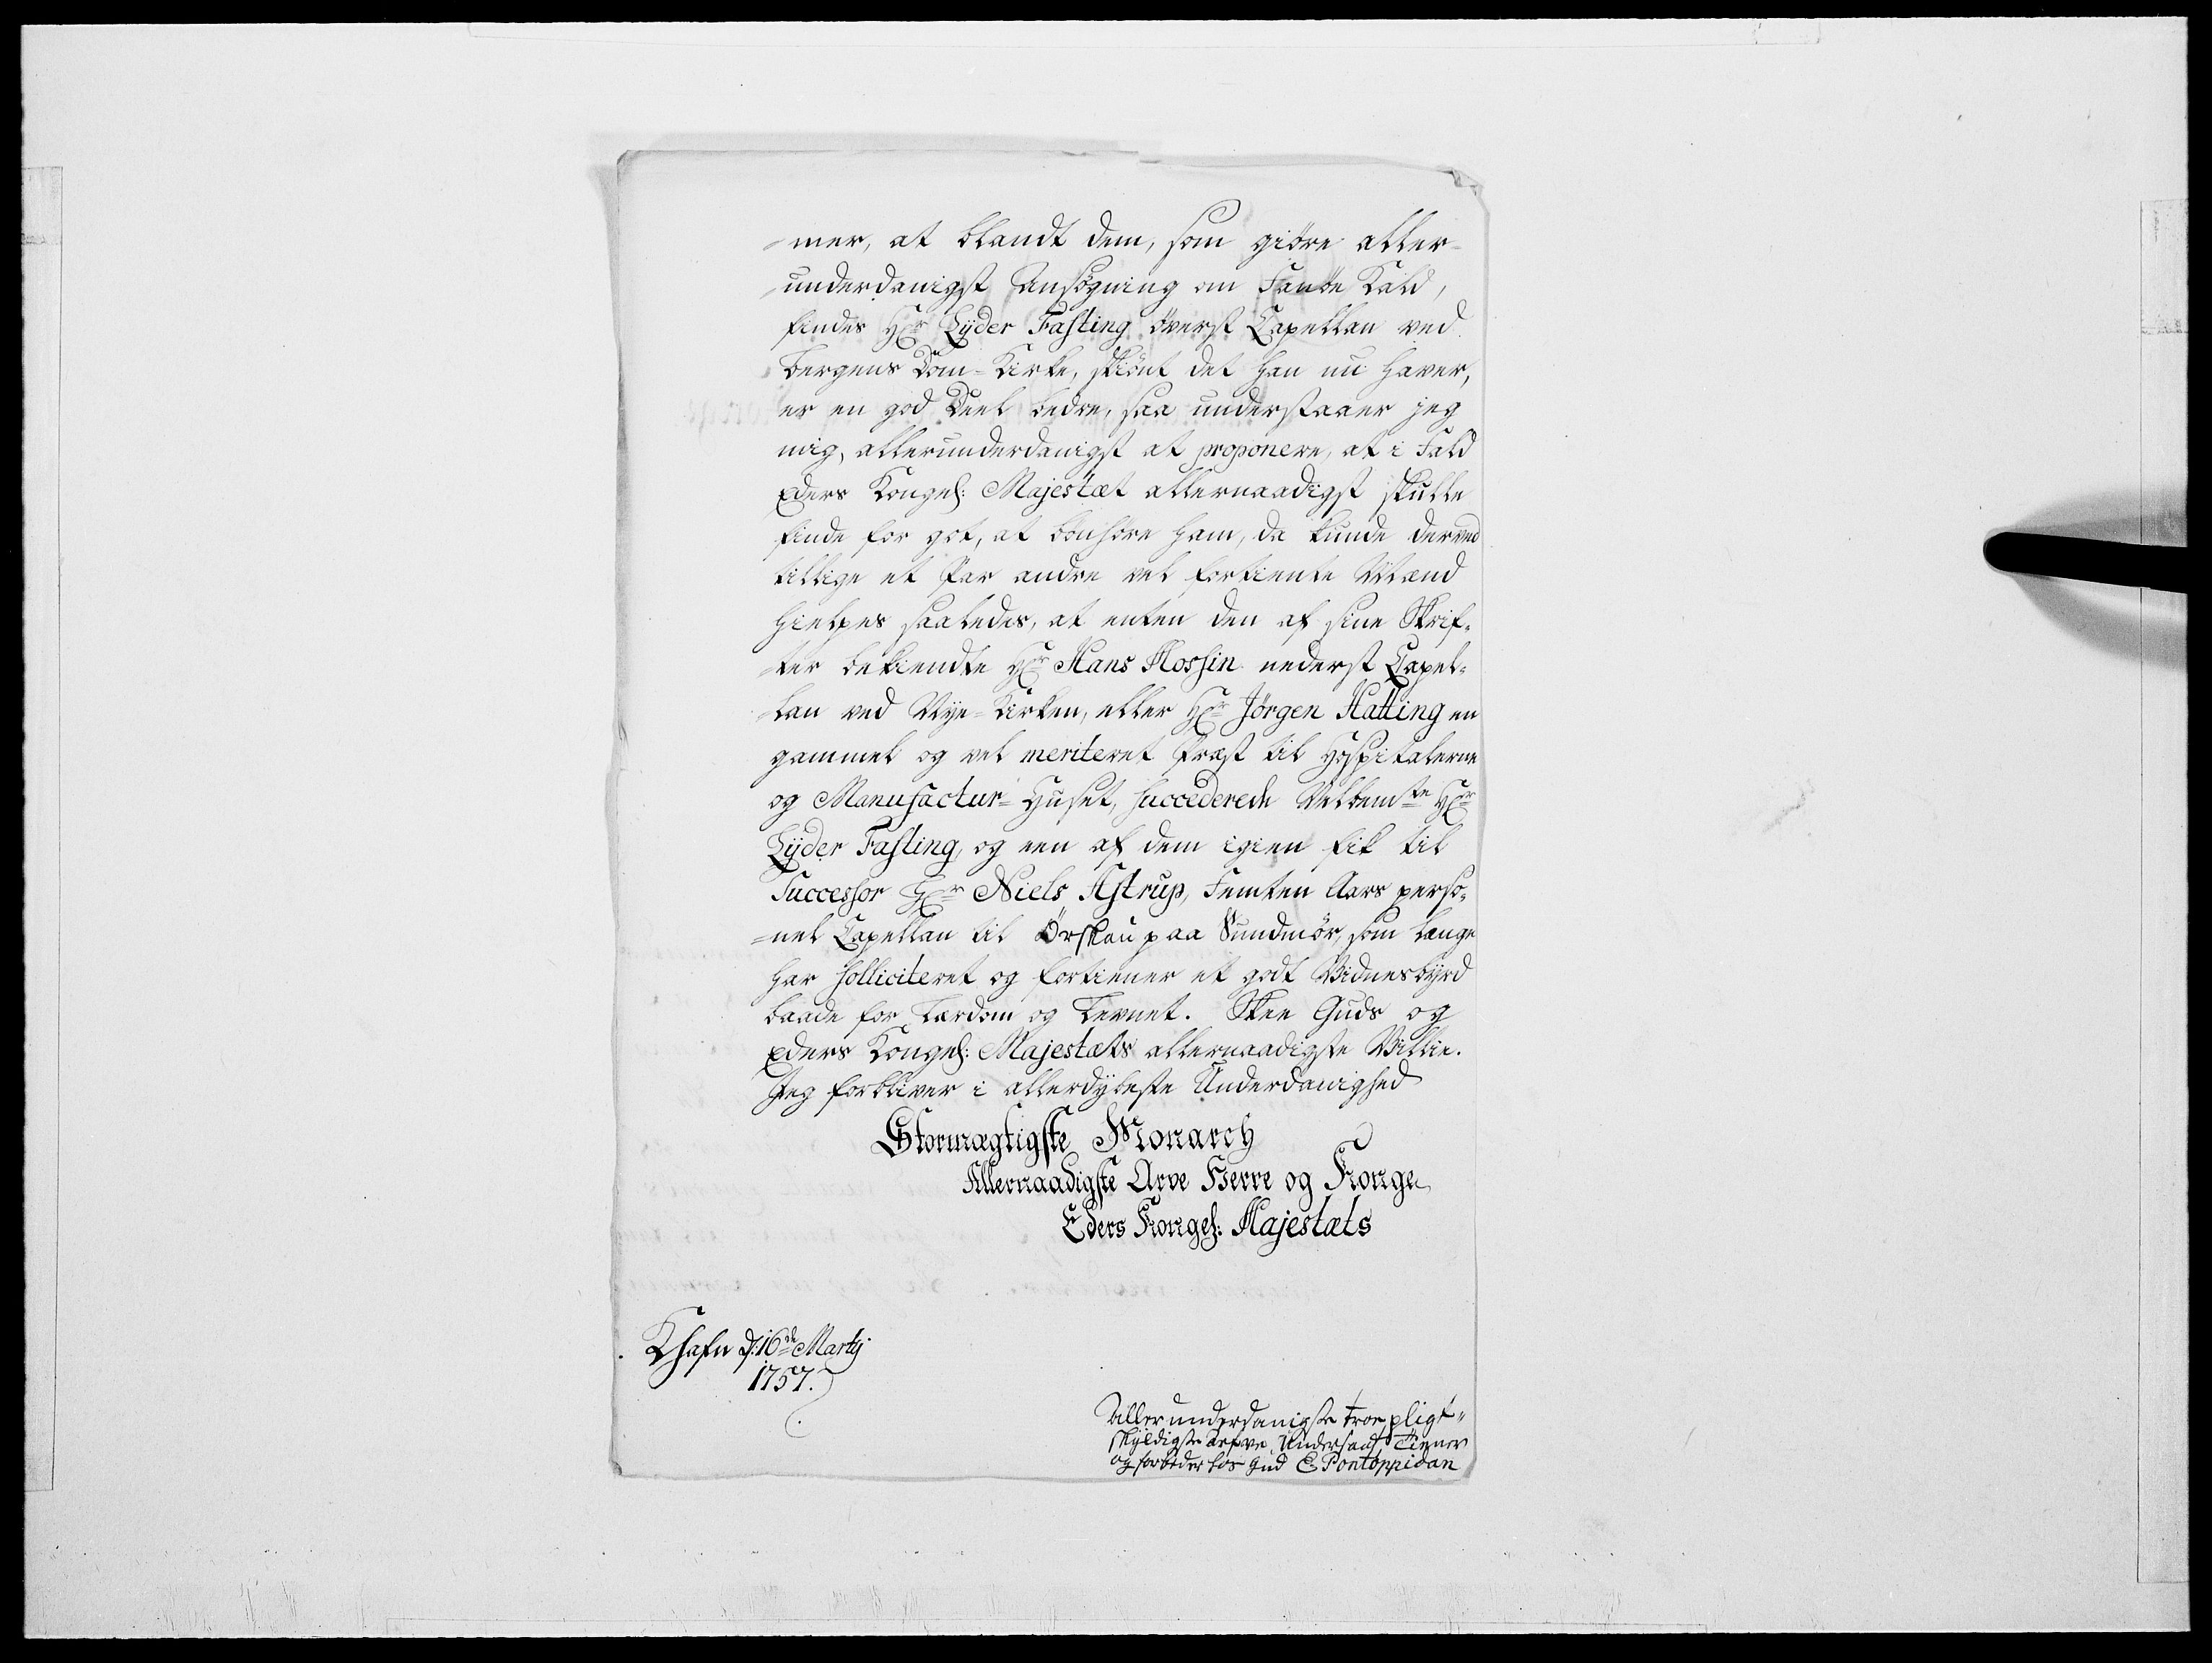 -mer, at blandt dem, som giöre aller-
-underdanigst Ansögning om Fanöe Kald,
findes Hr Lÿder Fasting överst Capellan ved
Bergens Dom-Kirke, skiönt det han nu haver,
er en god Deel bedre, saa understaaer jeg
mig, allerunderdanigst at proponere, at i Fald
Eders Kongel: Majestæt allernaadigst skulle
finde for got, at bönhöre ham, da kunde derved
tillige et Par andre vel fortiente Mænd
hielpes saaledes, at enten den af sine Skrif-
-ter bekiendte Hr Hans Hossin nederst Capel-
-lan ved Nye-Kirken, eller Hr Jörgen Hatting en
gammel og vel meriteret Præst til Hospitalerne
og Manufactur-Huset, succederede Velbemte Hr
Lÿder Fasting, og een af dem igien fik til
Successor Hr Niels Astrup, Femten Aars perso-
-nel Capellan til Örskau paa Sundmör, som længe
har solliciteret og fortiener et godt Vidnesbyrd
baade for Lærdom og Levnet. Skee Guds og
Eders Kongel: Majestæts allernaadigste Villie.
Jeg forbliver i allerdybeste Underdanighed
Stormægtigste Monarch
Allernaadigste Arve Herre og Konge
Eders Kongel: Majestæts
Khafn d: 16de Martij
1757.
allerunderdanigste troe pligt-
skyldigste Arfve Undersaat, Tiener
og forbeder hos Gud E Pontoppidan